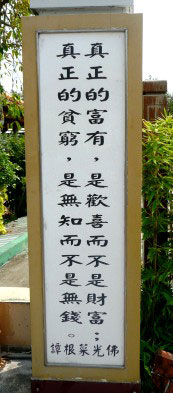 真正的富有，是歡喜而不是財富；
真正的貧窮，是無知而不是無錢。
佛光菜根譚